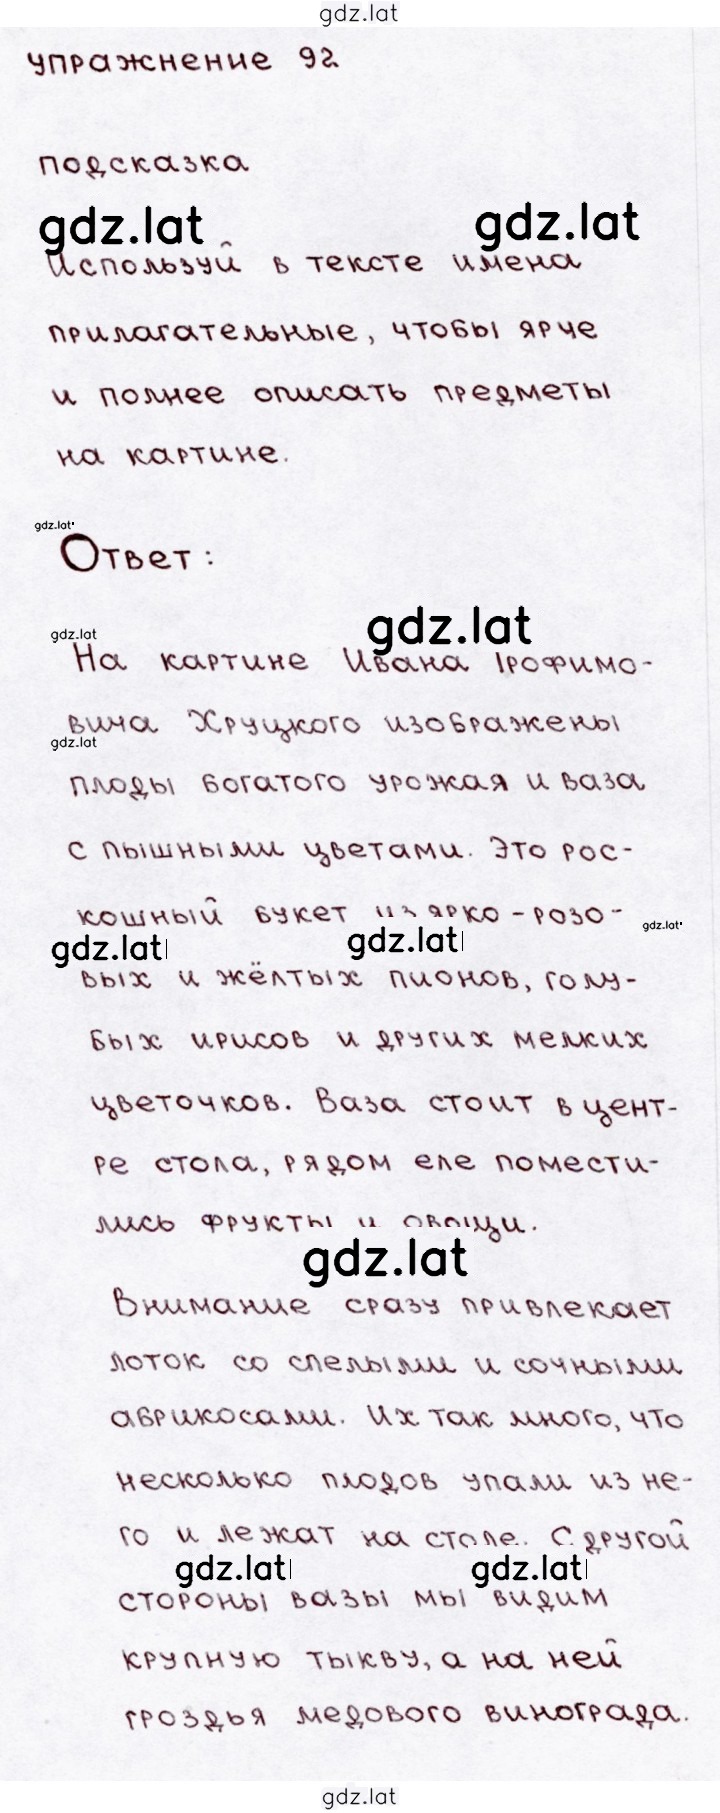 gdz.lat
упражнение 92
подсказка
gdz.lat gdz.lat
Используй в тексте имена
прилагательные, чтобы ярче
и полнее описать предметы
на картине.
gdz.lat
Ответ:
gdz.lat
gdz.lat
На картине Ивана Трофимо-
вича Хруцкого изображены
gdz.lat
плоды богатого урожая и ваза
с пышными цветами. Это рос-
кошный букет из ярко-розо-
gdz.lat
gdz.lat gdz.lat
вых и жёлтых пионов, голу-
бых ирисов и других мелких
цветочков. Ваза стоит в цент-
ре стола, рядом еле помести-
лись фрукты и овощи.
gdz.lat
Внимание сразу привлекает
лоток со спелыми и сочными
абрикосами. Их так много, что
несколько плодов упали из не-
го и лежат на столе. С другой
gdz.lat gdz.lat
стороны вазы мы видим
крупную тыкву, а на ней
гроздья медового винограда.
gdz.lat